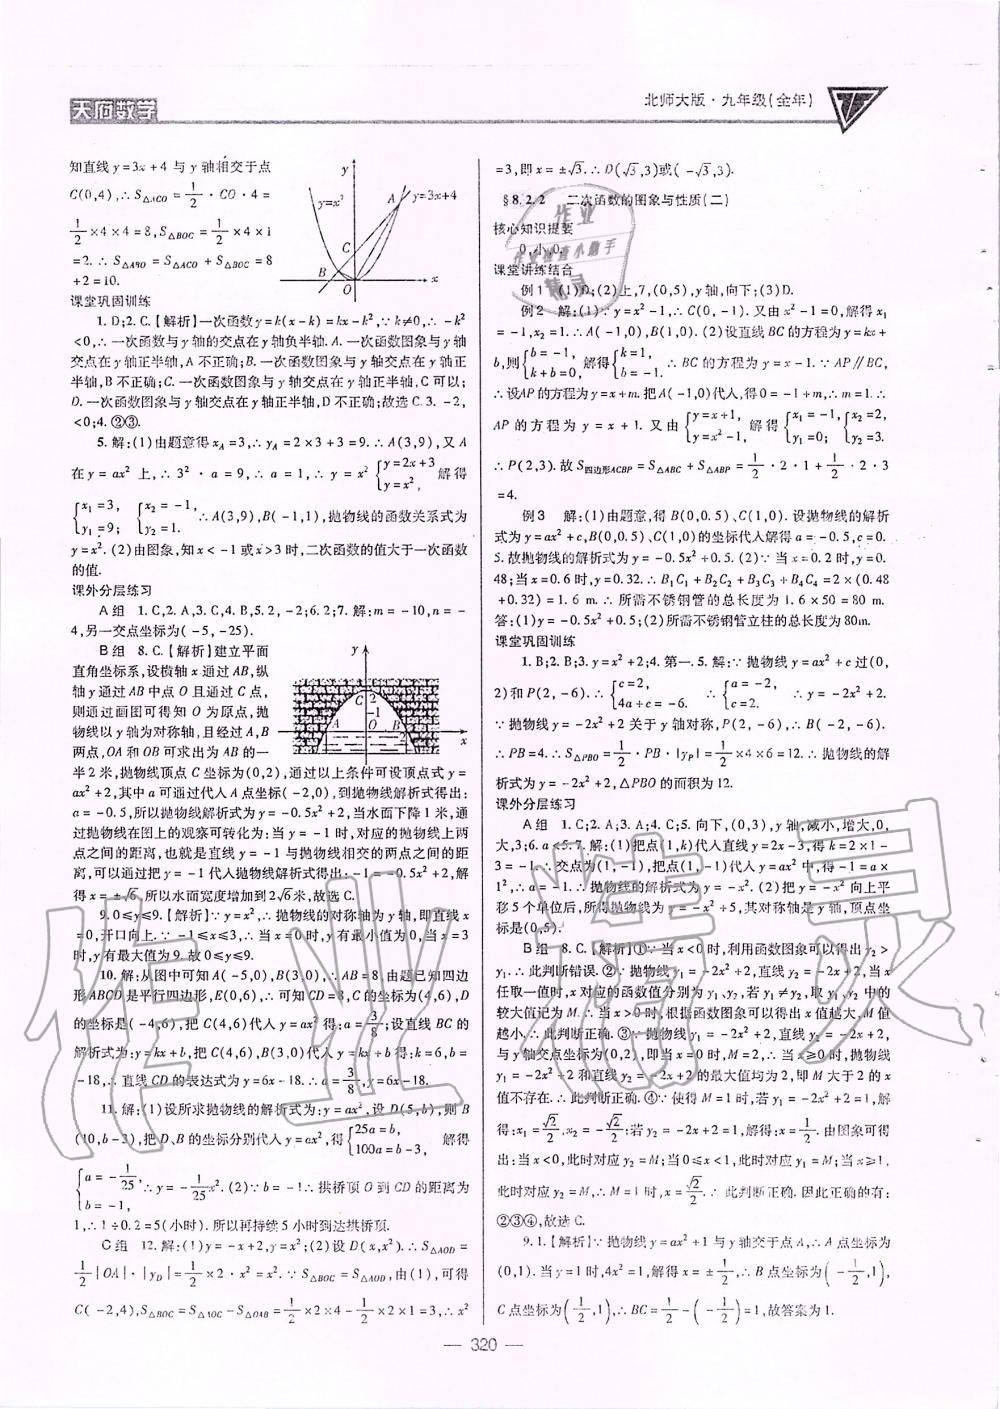 天府数学
北师大版·九年级(全年)
知直线y=3x+4与y轴相交于点
C(0,4),∴S△ACO=1/2·CO·4=
1/2×4×4=8,S△BOC=1/2×4×1
=2.∴S△ABO=S△ACO+S△BOC=8
+2=10.
y
y=x²
A
y=3x+4
C
B
O
x
课堂巩固训练
1.D;2.C.【解析】一次函数y=k(x-k)=kx-k²,∵k≠0,∴-k²
<0,∴一次函数与y轴的交点在y轴负半轴.A.一次函数图象与y轴
交点在y轴正半轴,A不正确;B.一次函数图象与y轴交点在y轴正
半轴,B不正确;C.一次函数图象与y轴交点在y轴负半轴,C可以;
D.一次函数图象与y轴交点在y轴正半轴,D不正确;故选C.3.-2,
<0;4.②③.
5.解:(1)由题意得xA=3,∴yA=2×3+3=9.∴A(3,9),又A
在y=ax²上,∴3²·a=9,∴a=1,∴y=x²{y=2x+3 y=x²,解得
{x1=3, y1=9; {x2=-1, y2=1.∴A(3,9),B(-1,1),抛物线的函数关系式为
y=x².(2)由图象,知x<-1或x>3时,二次函数的值大于一次函数
的值.
课外分层练习
A组 1.C,2.A,3.C,4.B,5.2,-2;6.2;7.解:m=-10,n=-
4,另一交点坐标为(-5,-25).
B组 8.C.【解析】建立平面
直角坐标系,设横轴x通过AB,纵
轴y通过AB中点O且通过C点,
则通过画图可得知O为原点,抛
物线以y轴为对称轴,且经过A,B
两点,OA和OB可求出为AB的一
y
C
2
1
A
O
B
2
x
半2米,抛物线顶点C坐标为(0,2),通过以上条件可设顶点式y=
ax²+2,其中a可通过代人A点坐标(-2,0),到抛物线解析式得出:
a=-0.5,所以抛物线解析式为y=-0.5x²+2,当水面下降1米,通
过抛物线在图上的观察可转化为:当y=-1时,对应的抛物线上两
点之间的距离,也就是直线y=-1与抛物线相交的两点之间的距
离,可以通过把y=-1代人抛物线解析式得出:-1=-0.5x²+2,解
得x=±√6,所以水面宽度增加到2√6米,故选C.
9.0≤y≤9.【解析】∵y=x²,∴抛物线的对称轴为y轴,即直线x
=0,开口向上.∵-1≤x≤3,∴当x=0时,y有最小值为0,当x=3
时,y有最大值为9.故0≤y≤9.
10.解:从图中可知A(-5,0),B(3,0),∴AB=8,由题已知四边
形ABCD是平行四边形,E(0,6),∴可知CD=8,C的坐标为(4,6),D
的坐标是(-4,6),把C(4,6)代人y=ax²得:a=3/8;设直线BC的
解析式为:y=kx+b,把C(4,6),B(3,0)代人y=kx+b得:k=6,b=
-18,∴直线CD的表达式为y=6x-18.∴a=3/8,y=6x-18.
11.解:(1)设所求抛物线的解析式为:y=ax²,设D(5,b),则B
(10,b-3),把D、B的坐标分别代人y=ax²,得{25a=b, 100a=b-3, 解得
{a=-1/25, b=-1.∴y=-1/25x².(2)∵b=-1∴拱桥顶O到CD的距离为
1,∴1÷0.2=5(小时).所以再持续5小时到达拱桥顶.
C组 12.解:(1)y=-x+2,y=x²;(2)设D(x,x²).∴S△AOD=
1/2|OA|·|yD|=1/2×2·x²=x².∵S△BOC=S△AOD,由(1),可得
C(-2,4),S△BOC=S△AOC-S△OAB=1/2×2×4-1/2×2×1=3,∴x²
=3,即x=±√3.∴D(√3,3)或(-√3,3).
§8.2.2 二次函数的图象与性质(二)
核心知识提要
0,小,0.
课堂讲练结合
例1 (1)D;(2)上,7,(0,5),y轴,向下;(3)D.
例2 解:(1)∵y=x²-1,∴C(0,-1).又由x²-1=0,解得x1
=-1,x2=1.∴A(-1,0),B(1,0).(2)设直线BC的方程为y=kx+
b,则{b=-1, k+b=0,解得{k=1, b=-1.∴BC的方程为y=x-1.∵AP∥BC,
∴设AP的方程为y=x+m.把A(-1,0)代人,得0=-1+m,∴m=1.∴
AP的方程为y=x+1.又由{y=x+1, y=x²-1,解得{x1=-1, y1=0; {x2=2, y2=3.
∴P(2,3).故S四边形ACBP=S△ABC+S△ABP=1/2·2·1+1/2·2·3
=4.
例3 解:(1)由题意,得B(0,0.5)、C(1,0).设抛物线的解析
式为y=ax²+c,B(0,0.5)、C(1,0)的坐标代人解得a=-0.5,c=0.
5.故抛物线的解析式为y=-0.5x²+0.5.(2)∵当x=0.2时,y=0.
48;当x=0.6时,y=0.32.∴B1C1+B2C2+B3C3+B4C4=2×(0.48
+0.32)=1.6 m.∴所需不锈钢管的总长度为1.6×50=80 m.
答:(1)y=-0.5x²+0.5;(2)所需不锈钢管立柱的总长度为80m.
课堂巩固训练
1.B;2.B;3.y=x²+2;4.第一.5.解:∵抛物线y=ax²+c过(0,
2)和P(2,-6).∴{c=2, 4a+c=-6. ∴{a=-2, c=2. ∴y=-2x²+2.
∵抛物线y=-2x²+2关于y轴对称,P(2,-6),∴B(-2,-6).
∴PB=4.∴S△PBO=1/2·PB·|yP|=1/2×4×6=12.∴抛物线的解
析式为y=-2x²+2,△PBO的面积为12.
课外分层练习
A组 1.C;2.A;3.A;4.C;5.向下,(0,3),y轴,减小,增大,0,
大,3;6.a<5.7.解:(1)把点(1,k)代人直线y=2x-3,得k=2×1-
3=-1.∴交点为(1,-1),把点(1,-1)代人y=ax²中,得-1=a×
1²,∴a=-1.∴抛物线的解析式为y=-x².(2)把y=-x²向上平
移5个单位后,所得抛物线为y=-x²+5,其对称轴是y轴,顶点坐
标是(0,5).
B组 8.C.【解析】①∵当x<0时,利用函数图象可以得出y2>
y1.∴此判断错误.②∵抛物线y1=-2x²+2,直线y2=-2x+2,当x
任取一值时,x对应的函数值分别为y1、y2,若y1≠y2,取y1、y2中的
较大值记为M.∴当x>0时,根据函数图象可以得出x值越大,M值
越小.∴此判断正确.③∵抛物线y1=-2x²+2,直线y2=-2x+2,
与y轴交点坐标为(0,2),即当x=0时,M=2,∴当x≥0时,抛物线
y1=-2x²+2和直线y2=-2x+2的最大值均为2,即M大于2的x
值不存在.∴此判断正确.④∵使得M=1时,若y1=-2x²+2=1,解
得:x1=√2/2,x2=-√2/2;若y2=-2x+2=1,解得:x=1/2.由图象可得
出:当x<0,此时对应y2=M;当0≤x<1,此时对应y1=M;当x≥1,
此时对应y2=M,∴M=1时,x=√2/2.∴此判断正确.因此正确的有:
②③④,故选C.
9.1.【解析】∵抛物线y=ax²+1与y轴交于点A,∴A点坐标为
(0,1).当y=1时,4x²=1,解得x=±1/2,∴B点坐标为(-1/2,1),
C点坐标为(1/2,1),∴BC=1/2-(-1/2)=1,故答案为1.
— 320 —
作业
作业检查小助手
精灵
作业精灵